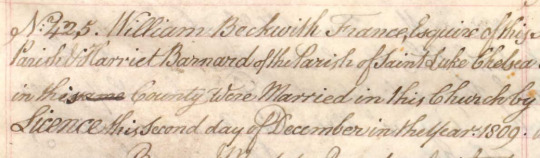 No. 425. William Beckwith France, Esquire of this
Parish & Harriet Barnard of the Parish of Saint Luke Chelsea
in this same County Were Married in this Church by
Licence this Second day of December in the Year 1809.